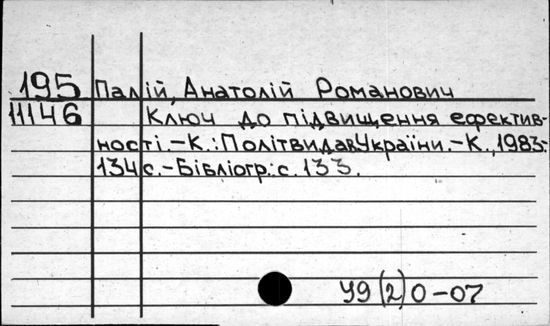 195 Палій, Анатолій Романович
11146 Ключ до підвищення ефектив-
ності.-К.:ПолітвидавУкраїни.-К.,1983.-
134с.-Бібліогр.:с.133.
У9(2)0-07